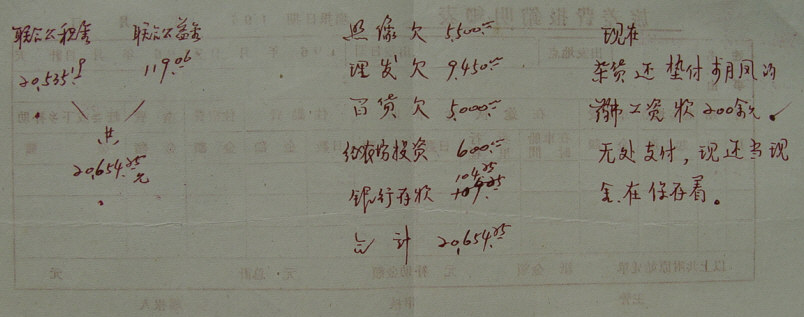 联合公积金 联合公益金
20,535.19 119.06
共
20,654.25元
照像欠 5,500.00
理发欠 9,450.00
百货欠 5,000.00
投资 600.00
银行存款 104.25
合计 20,654.25
现在
杂货还垫付
工资款200余元。
无处支付，现还当现
金在保存着。